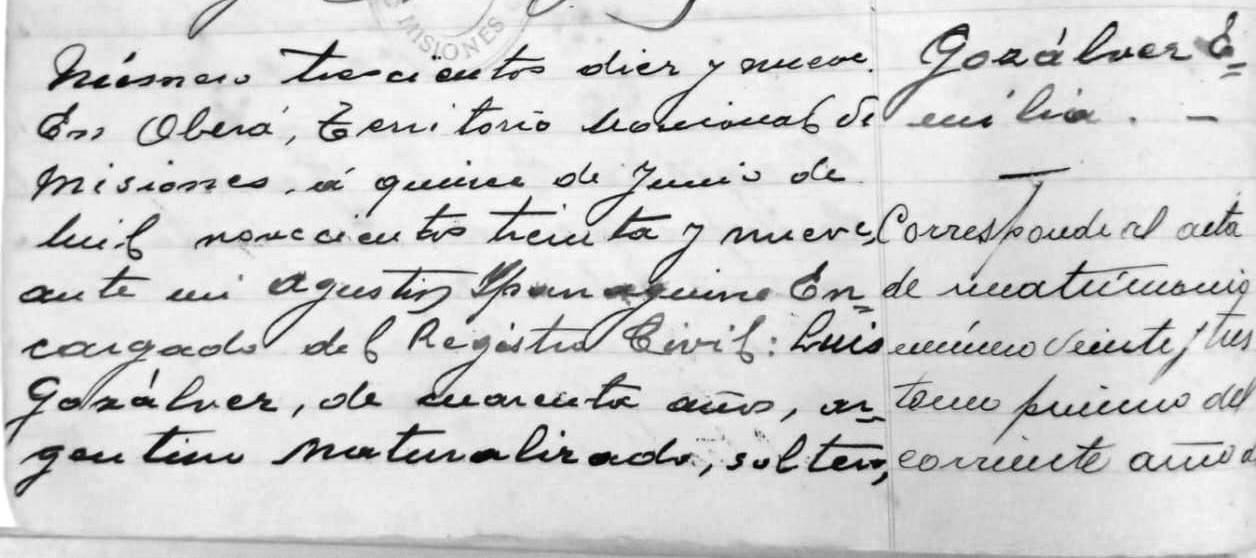 MISIONES
Número trescientos diez y nueve.
En Oberá, Territorio Nacional de
Misiones, á quince de Junio de
mil novecientos treinta y nueve,
ante mi Agustin En=
cargado del Registro Civil: Luis
Gozálvez, de cuarenta años, ar=
gentino naturalizado, soltero,
Gozálvez E=
milia. —
Corresponde al acta
de matrimonio
número veinte y tres
tomo primero del
corriente año